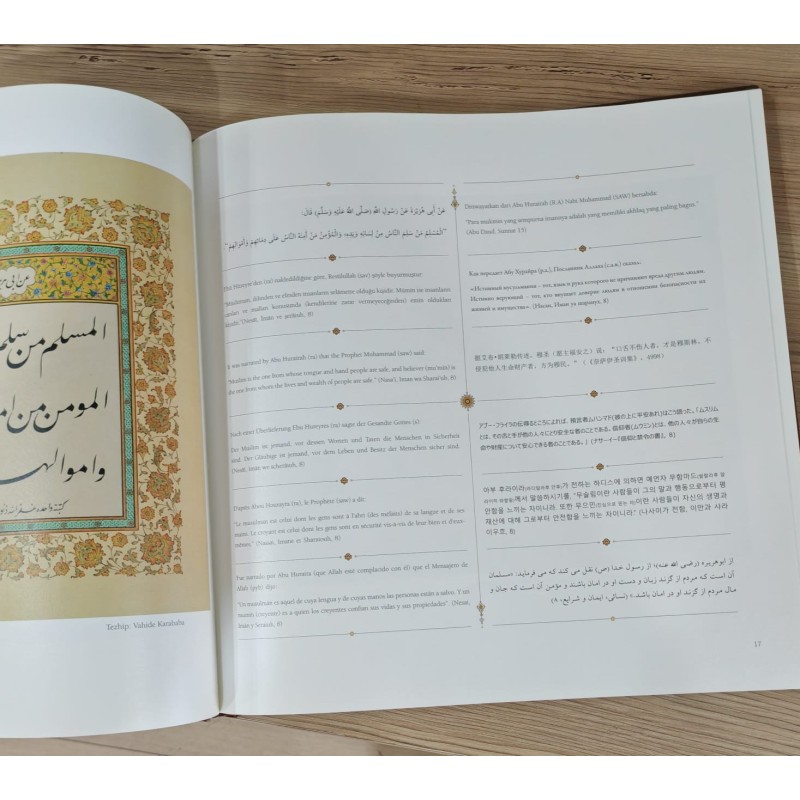 المسلم من سلم
المومن من
واموالهم
Tezhip: Vahide Karababa
عَنْ أَبِي هُرَيْرَةَ عَنْ رَسُولِ اللَّهِ (صَلَّى اللَّهُ عَلَيْهِ وَسَلَّمَ) قَالَ:
"الْمُسْلِمُ مَنْ سَلِمَ النَّاسُ مِنْ لِسَانِهِ وَيَدِهِ، وَالْمُؤْمِنُ مَنْ أَمِنَهُ النَّاسُ عَلَى دِمَائِهِمْ وَأَمْوَالِهِمْ"
Ebu Hüreyre'den (ra) nakledildiğine göre, Resûlullah (sav) şöyle buyurmuştur:
"Müslüman, dilinden ve elinden insanların selâmette olduğu kişidir. Mümin ise insanların
canları ve malları konusunda (kendilerine zarar vermeyeceğinden) emin oldukları
kişidir." (Nesâî, Îmân ve şerâiuh, 8)
It was narrated by Abu Hurairah (ra) that the Prophet Mohammad (saw) said:
"Muslim is the one from whose tongue and hand people are safe, and believer (mu'min) is
the one from whom the lives and wealth of people are safe." (Nasa'i, Iman wa Shara'iuh, 8)
Nach einer Überlieferung Ebu Hureyras (ra) sagte der Gesandte Gottes (s):
"Der Muslim ist jemand, vor dessen Worten und Taten die Menschen in Sicherheit
sind. Der Gläubige ist jemand, vor dem Leben und Besitz der Menschen sicher sind."
(Nesâî, Imân we scherâiuh, 8)
D'après Abou Hourayra (ra), le Prophète (saw) a dit:
"Le musulman est celui dont les gens sont à l'abri (des méfaits) de sa langue et de ses
mains. Le croyant est celui dont les gens sont en sécurité vis-à-vis de leur bien et d'eux-
mêmes." (Nasaï, Imann et Sharaiouh, 8)
Fue narrado por Abu Huraira (que Allah esté complacido con él) que el Mensajero de
Allah (pyb) dijo:
"Un musulmán es aquel de cuya lengua y de cuyas manos las personas están a salvo. Y un
mumin (creyente) es a quien los creyentes confían sus vidas y sus propiedades" (Nesai,
Imán y Seraiuh, 8)
Diriwayatkan dari Abu Hurairah (R.A) Nabi Muhammad (SAW) bersabda:
"Para mukmin yang sempurna imannya adalah yang memiliki akhlaq yang paling bagus."
(Abu Daud, Sunnat 15)
Как передает Абу Хурайра (р.а.), Посланник Аллаха (с.а.в.) сказал:
«Истинный мусульманин – тот, язык и рука которого не причиняют вреда другим людям.
Истинно верующий – тот, кто внушает доверие людям в отношении безопасности их
жизней и имущества». (Насаи, Иман уа шараиух, 8)
据艾布•胡莱勒传述，穆圣（愿主福安之）说，“口舌不伤人者，才是穆斯林。不
侵犯他人生命财产者，方为穆民。”（《奈萨伊圣训集》，4998）
アブー・フライラの伝承るところによれば、預言者ムハンマド(彼の上に平安あれ)はこう語った。「ムスリム
とは、その舌と手が他の人々にとり安全な者のことである。信仰者(ムウミン)とは、他の人々が自らの生
命や財産について安心できる者のことである。」 (ナサーイー『信仰と諸令の書』、8)
아부 후라이라(하나님께서 만족)가 전하는 하디스에 의하면 예언자 무함마드(평화가 그에게)
께서 말씀하시기를, "무슬림이란 사람들이 그의 말과 행동으로부터 평
안함을 느끼는 자이니라. 또한 무으민(진심으로 믿는 자)이란 사람들이 자신의 생명과
재산에 대해 그로부터 안전함을 느끼는 자이니라" (나사이가 전함, 이만과 샤라
이우흐, 8)
از ابوهریره (رضی الله عنه)؛ از رسول خدا (ص) نقل می کند که می فرماید: «مسلمان
آن است که مردم از گزند زبان و دست او در امان باشند و مؤمن آن است که جان و
مال مردم از گزند او در امان باشد.» (نسائی، ایمان و شرایع، ۸)
17